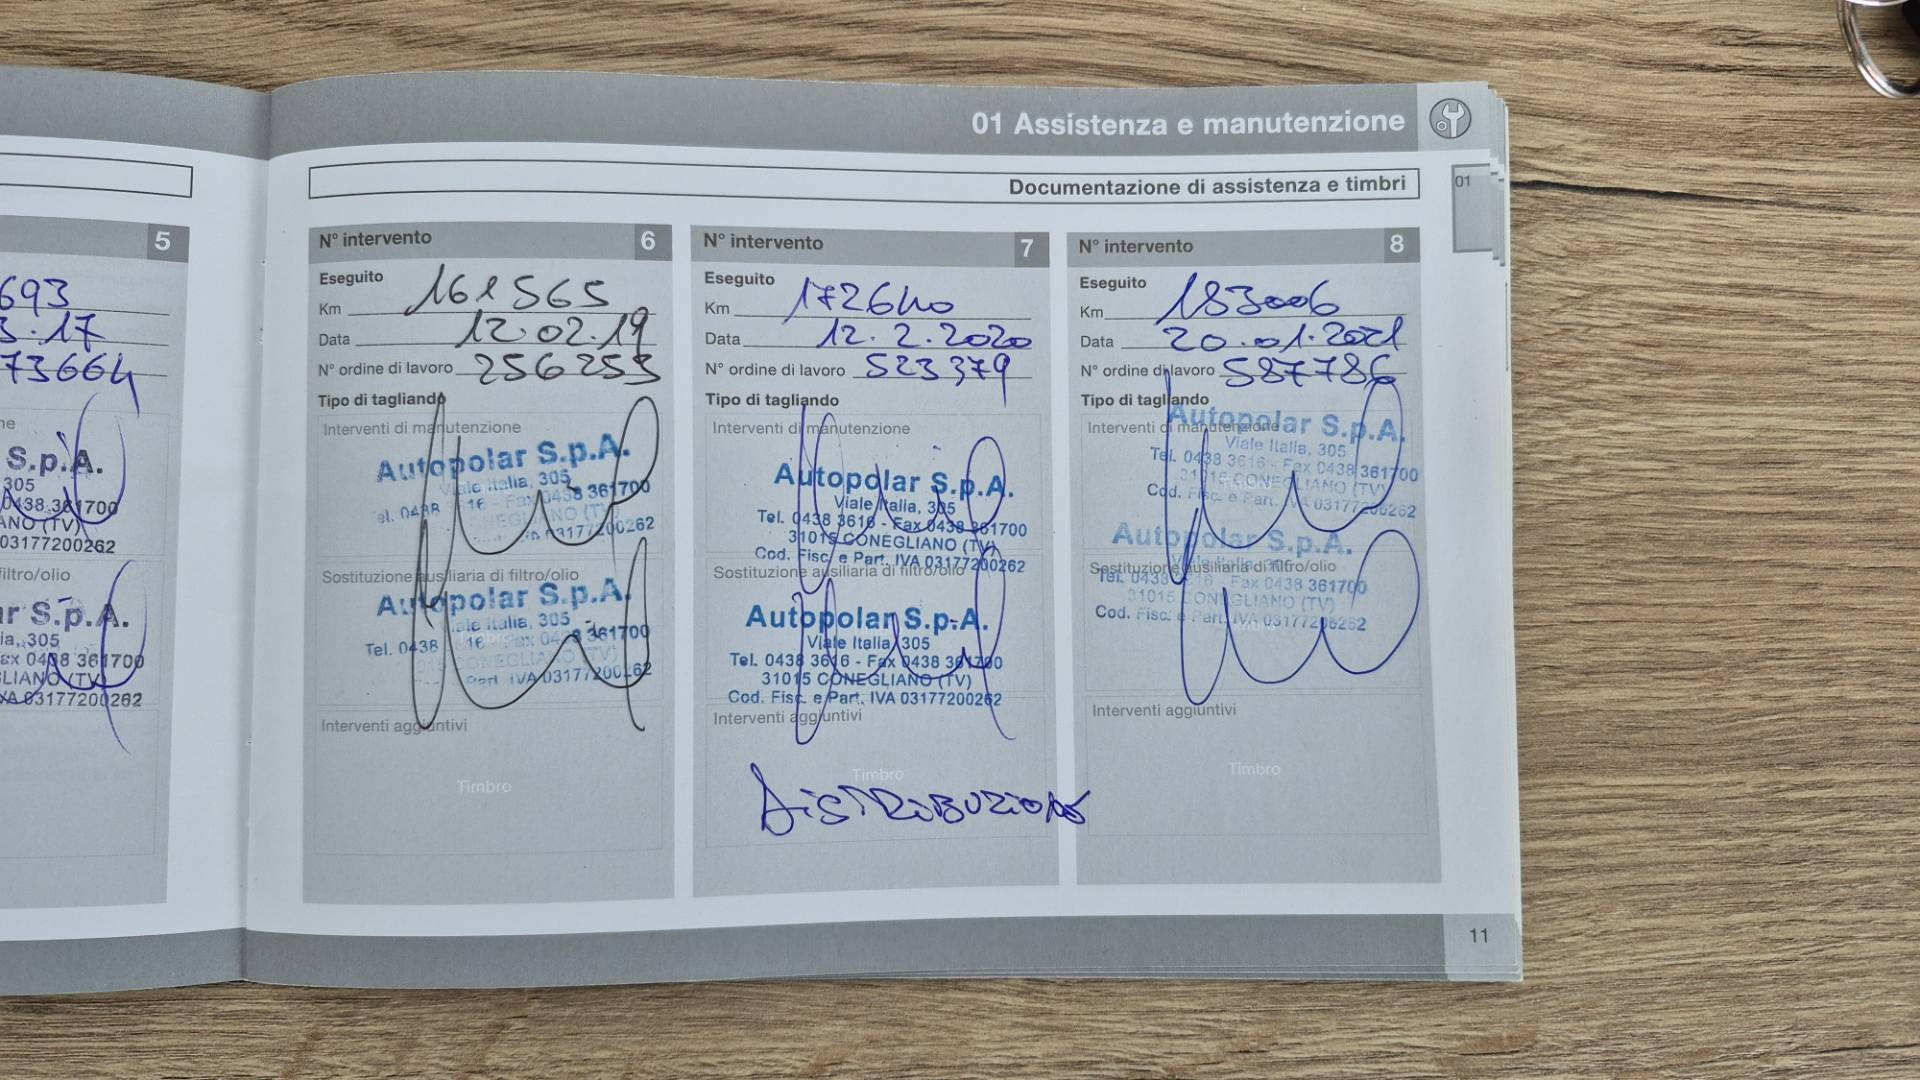 01 Assistenza e manutenzione
Documentazione di assistenza e timbri
01
5
693
3.17
73664
S.p.A.
305
0438 361700
ANO (TV)
03177200262
filtro/olio
r S.p.A.
ia, 305
ax 0438 361700
LIANO (TV)
VA 03177200262
N° intervento 6
Eseguito
Km 161565
Data 12.02.19
N° ordine di lavoro 256253
Tipo di tagliando
Interventi di manutenzione
Autopolar S.p.A.
Viale Italia, 305
Tel. 0438 3616 - Fax 0438 361700
31015 CONEGLIANO (TV)
Part. IVA 03177200262
Sostituzione ausiliaria di filtro/olio
Autopolar S.p.A.
Viale Italia, 305
Tel. 0438 3616 - Fax 0438 361700
31015 CONEGLIANO (TV)
Part. IVA 03177200262
Interventi aggiuntivi
Timbro
N° intervento 7
Eseguito
Km 172640
Data 12.2.2020
N° ordine di lavoro 523379
Tipo di tagliando
Interventi di manutenzione
Autopolar S.p.A.
Viale Italia, 305
Tel. 0438 3616 - Fax 0438 361700
31015 CONEGLIANO (TV)
Cod. Fisc. e Part. IVA 03177200262
Sostituzione ausiliaria di filtro/olio
Autopolar S.p.A.
Viale Italia, 305
Tel. 0438 3616 - Fax 0438 361700
31015 CONEGLIANO (TV)
Cod. Fisc. e Part. IVA 03177200262
Interventi aggiuntivi
Timbro
DISTRIBUZIONE
N° intervento 8
Eseguito
Km 183006
Data 20.01.2021
N° ordine di lavoro 587786
Tipo di tagliando
Interventi di manutenzione
Autopolar S.p.A.
Viale Italia, 305
Tel. 0438 3616 - Fax 0438 361700
31015 CONEGLIANO (TV)
Cod. Fisc. e Part. IVA 03177200262
Sostituzione ausiliaria di filtro/olio
Autopolar S.p.A.
Viale Italia, 305
Tel. 0438 3616 - Fax 0438 361700
31015 CONEGLIANO (TV)
Cod. Fisc. e Part. IVA 03177200262
Interventi aggiuntivi
Timbro
11